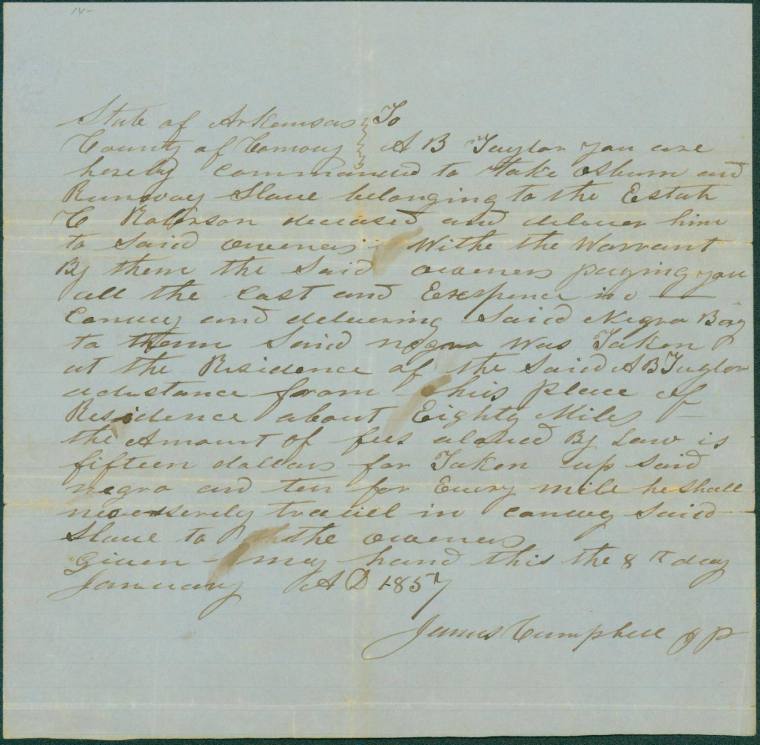 State of Arkansas } To
County of Conway } A B Taylor you are
hereby commanded to take Osburn and
Runway Slave belonging to the Estate
Roberson deceased and deliver him
to said owners Withe the Warrant
By them the Said oweners paying you
all the cost and Exspence in
Convey and delivering Said Negro Boy
to them Said negro Was Taken
at the Residence of the Said A B Taylor
adistance from his place of
Residence about Eighty Miles
the Amount of fees alowed By Law is
fifteen dollars for Taken up said
negro and ten for Every mile he shall
necesserely travel in convey Said
Slave to the owners
Given my hand this the 8 day
January AD 1857
James Campbell J P